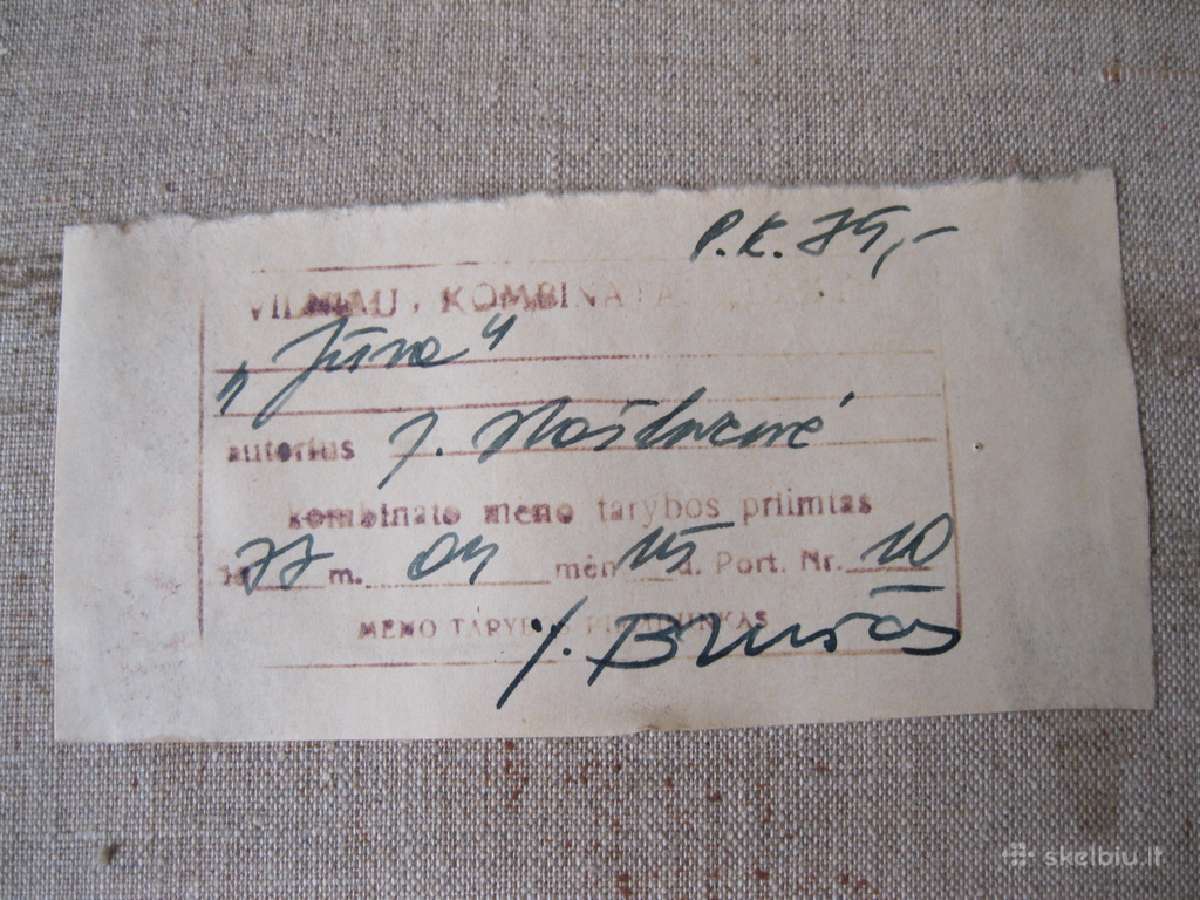 P.K. 75,-
VILNIAUS KOMBINATAS
„Jūra"
autorius J.
kombinato meno tarybos priimtas
1977 m. 04 mėn 15 d. Port. Nr. 10
MENO TARYBOS PIRMININKAS
J.
skelbiu.lt